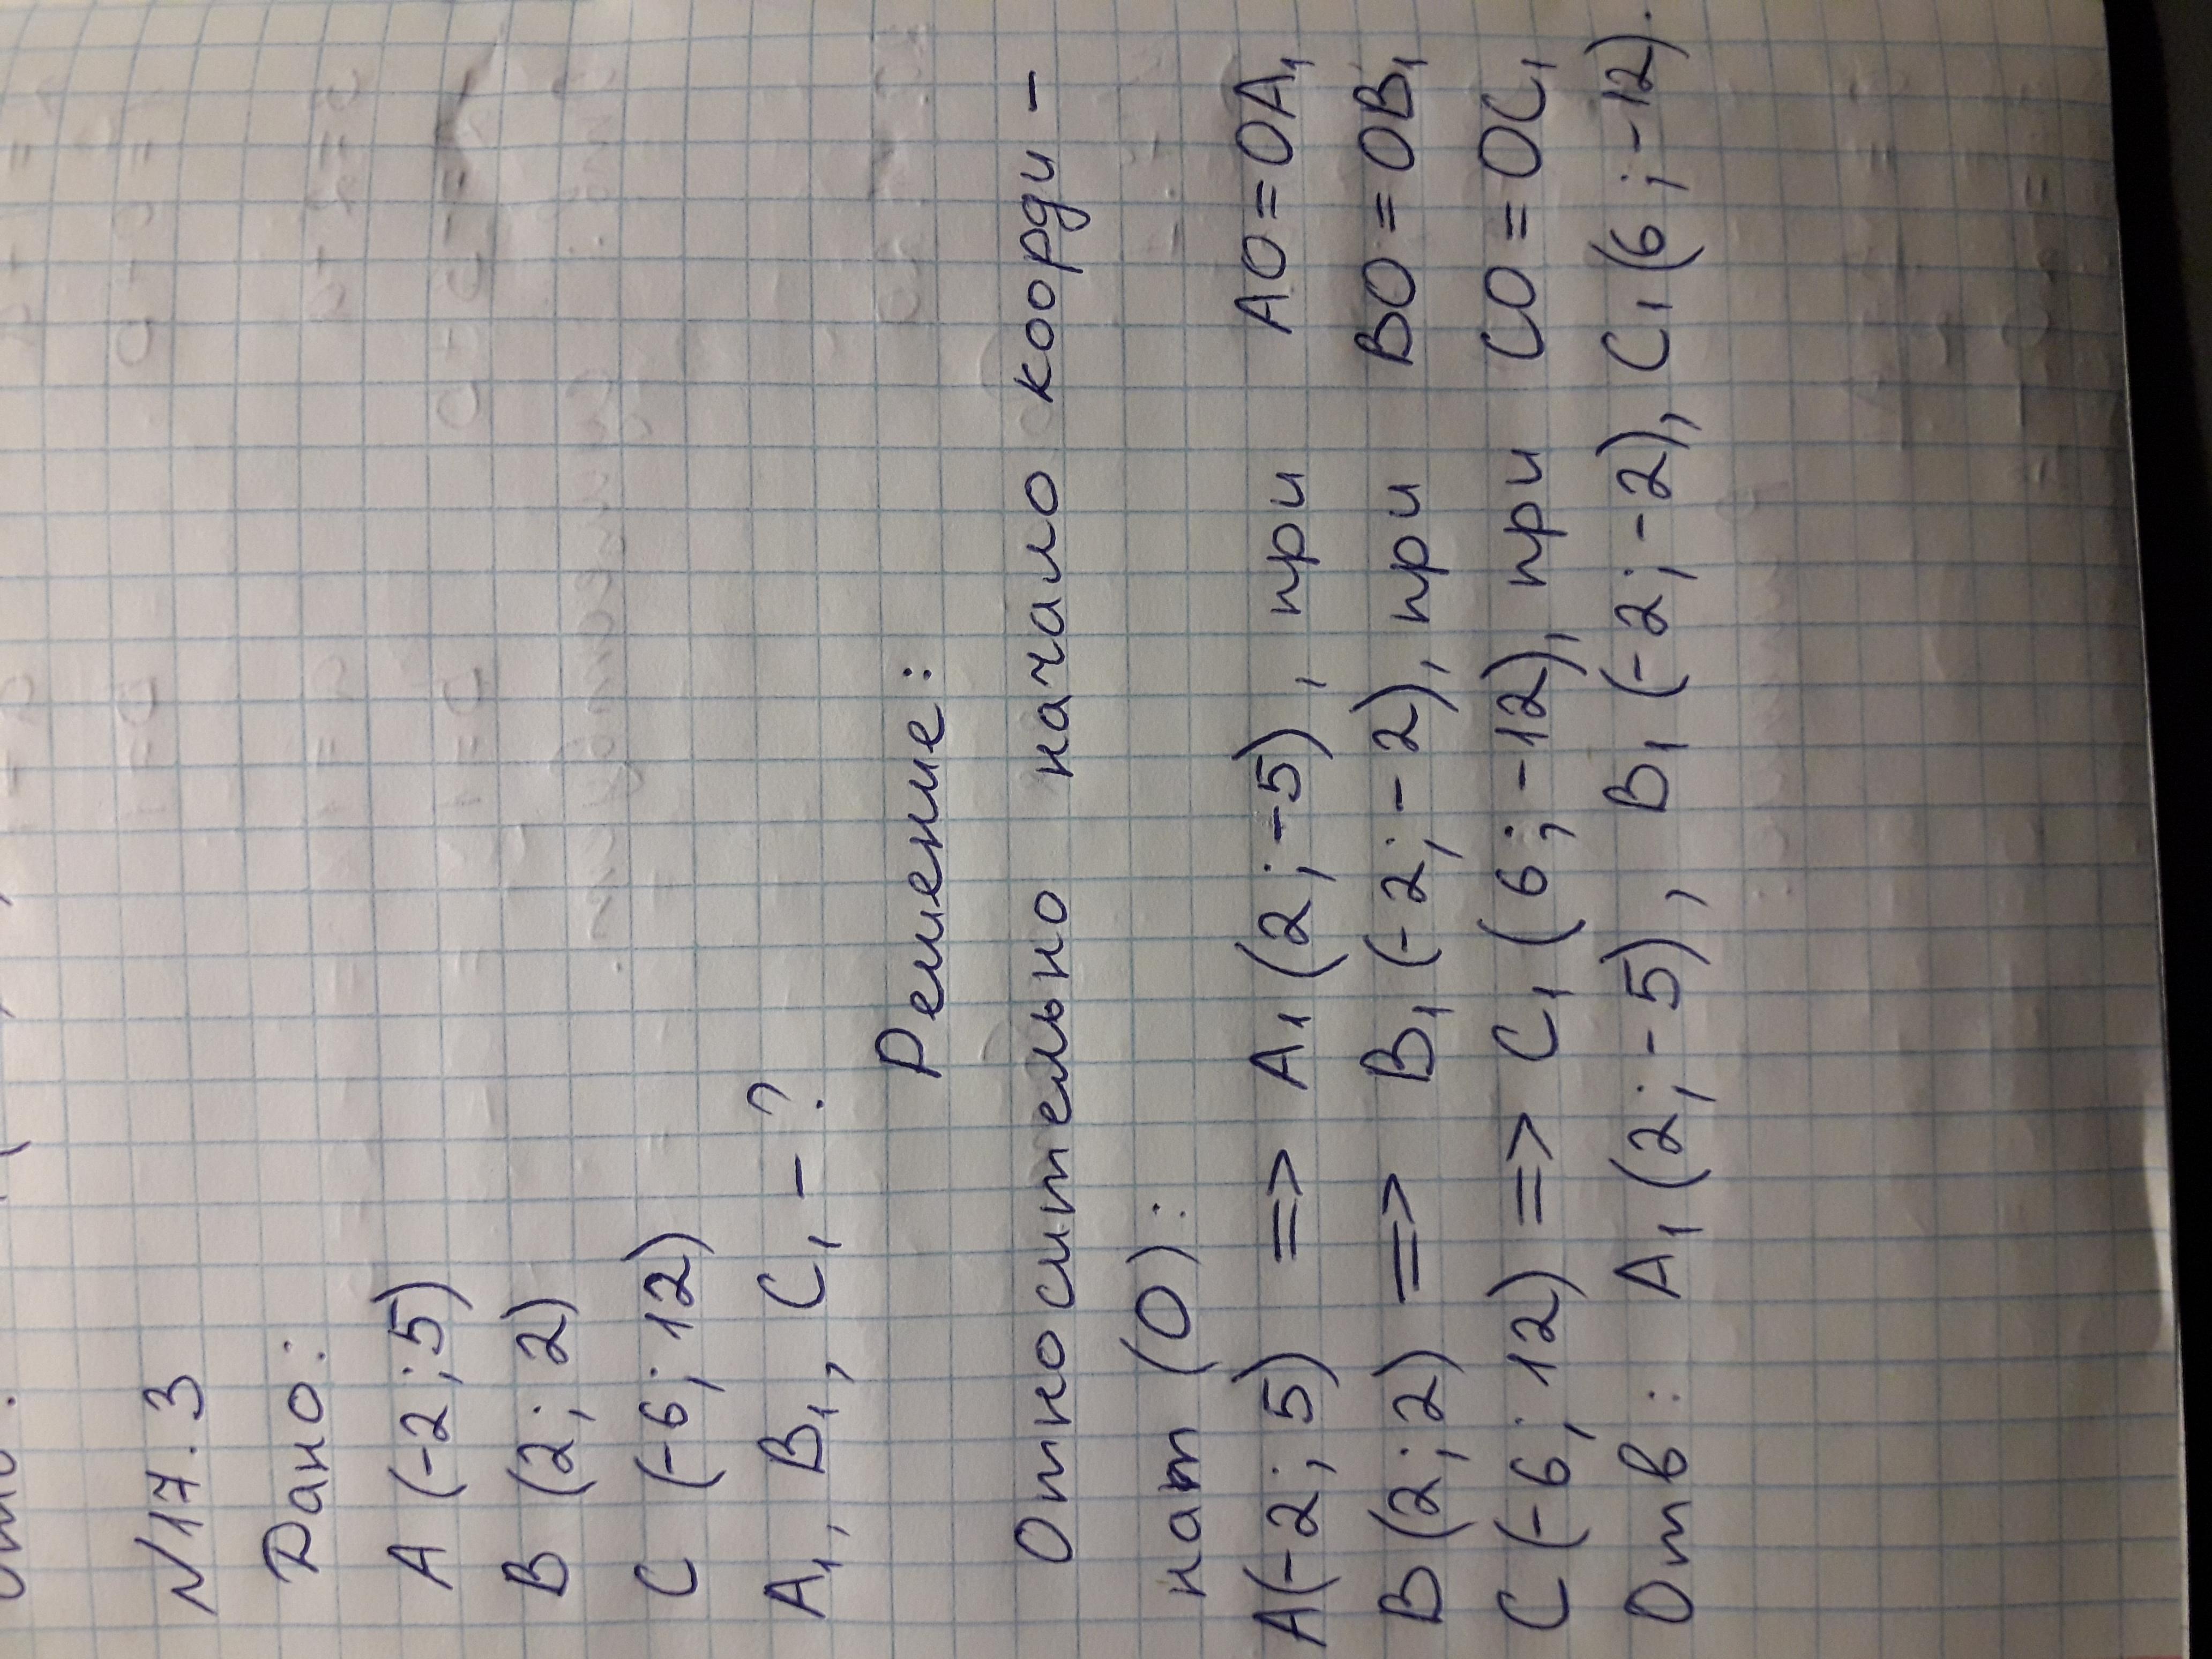 N17.3
Дано:
A (-2; 5)
B (2; 2)
C (-6; 12)
A₁, B₁, C₁ - ?
Решение:
Относительно начало коорди-
нат (O):
A(-2; 5) => A₁(2; -5), при AO=OA₁
B(2; 2) => B₁(-2; -2), при BO=OB₁
C(-6; 12) => C₁(6; -12), при CO=OC₁
Отв: A₁(2; -5), B₁(-2; -2), C₁(6; -12).